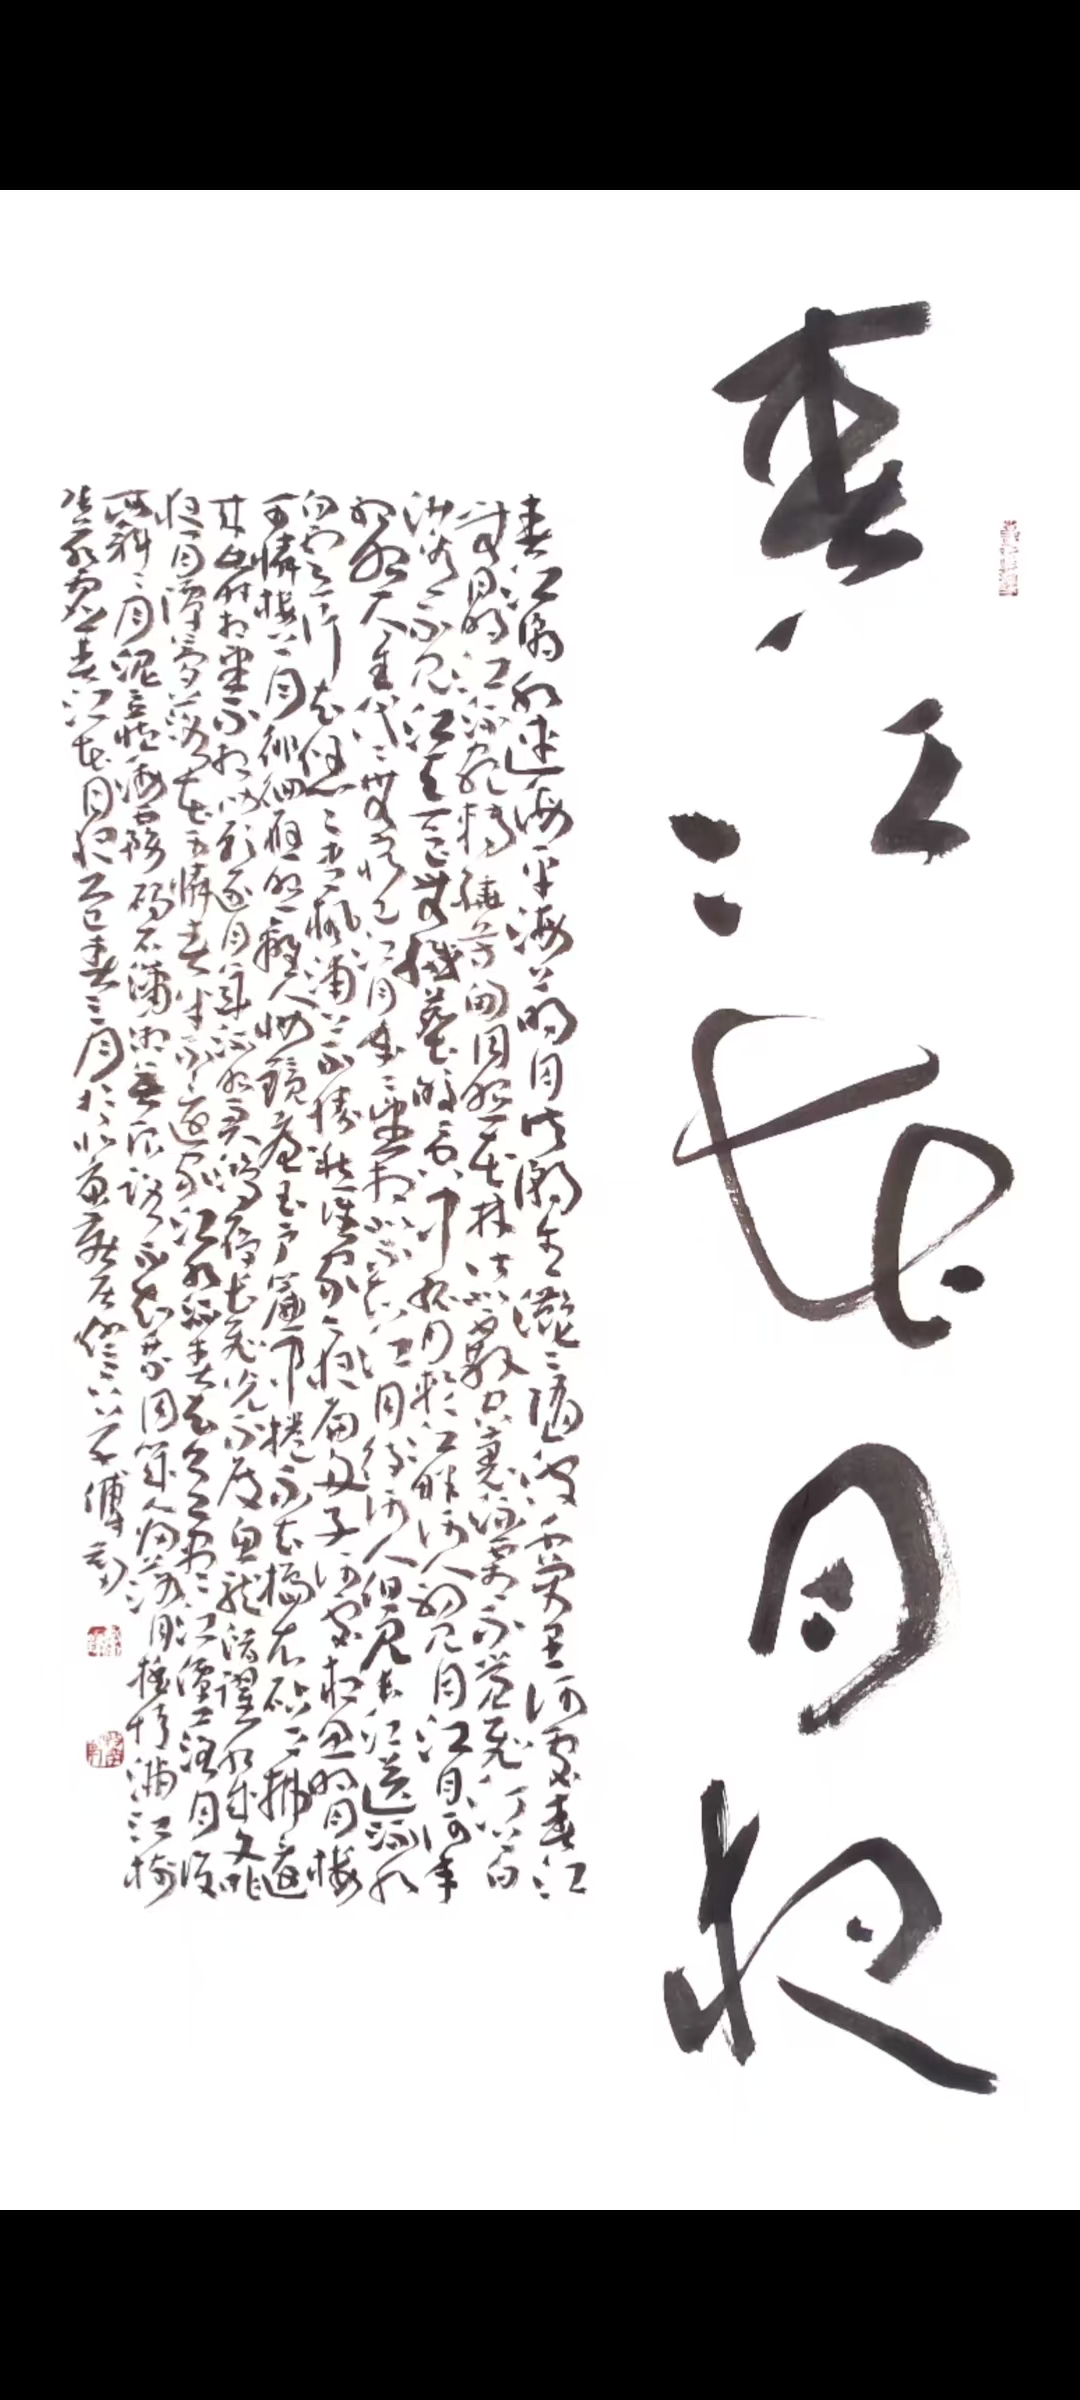 春江花月夜
春江潮水连海平海上明月共潮生滟滟随波千万里何处春江
无月明江流宛转绕芳甸月照花林皆似霰空里流霜不觉飞汀上白
沙看不见江天一色无纤尘皎皎空中孤月轮江畔何人初见月江月何年
初照人人生代代无穷已江月年年望相似不知江月待何人但见长江送流水
白云一片去悠悠青枫浦上不胜愁谁家今夜扁舟子何处相思明月楼
可怜楼上月徘徊应照离人妆镜台玉户帘中卷不去捣衣砧上拂还
来此时相望不相闻愿逐月华流照君鸿雁长飞光不度鱼龙潜跃水成文昨
夜闲潭梦落花可怜春半不还家江水流春去欲尽江潭落月复
西斜斜月沉沉藏海雾碣石潇湘无限路不知乘月几人归落月摇情满江树
春江花月夜 春三月于北 傅